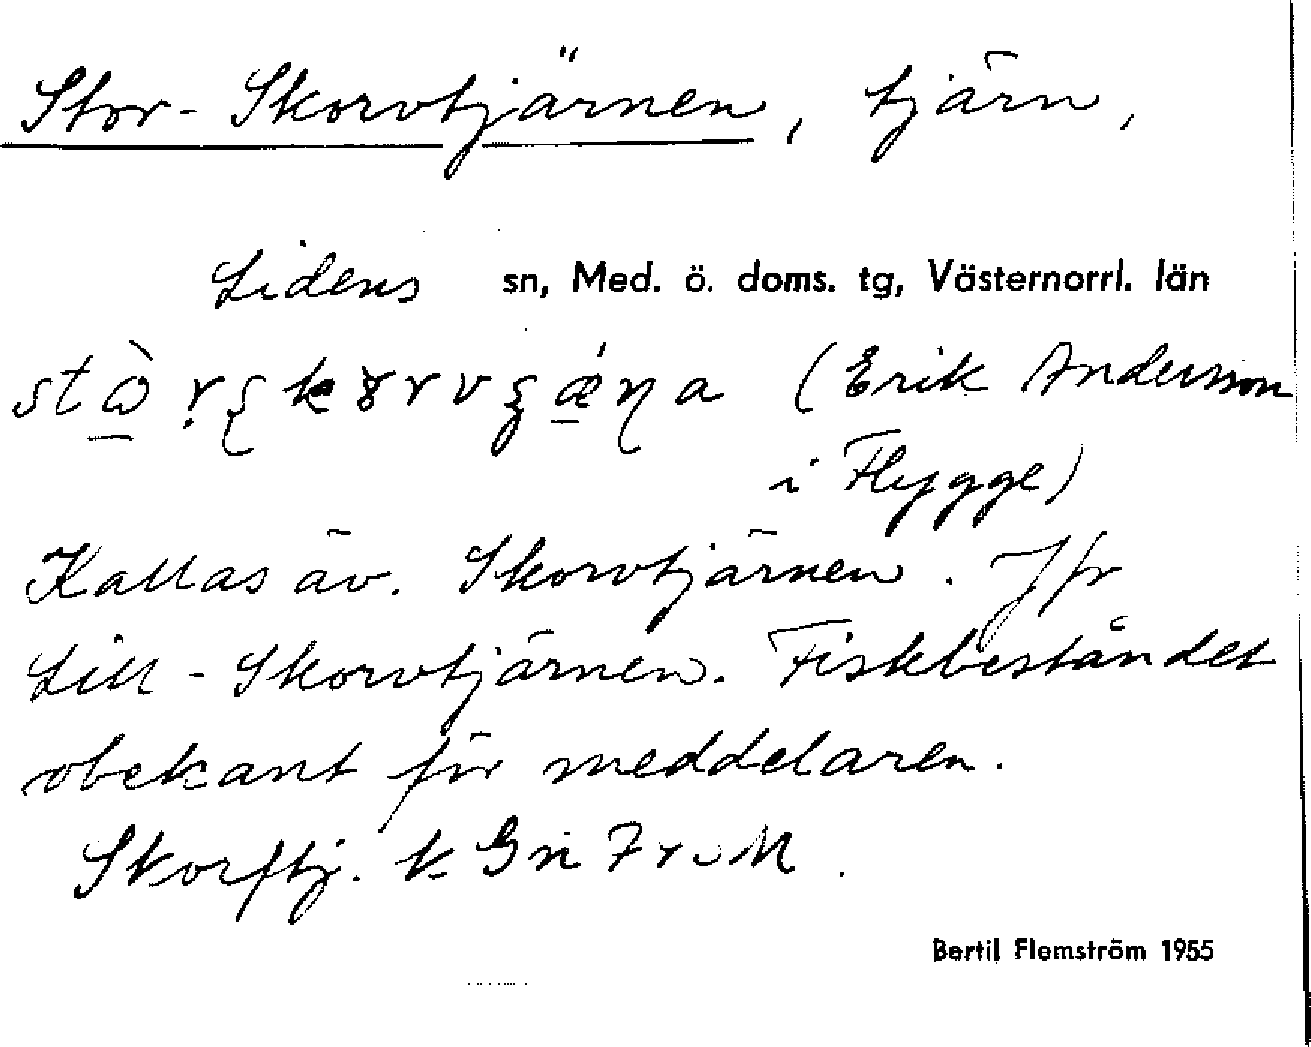 Stor-Skorvtjärnen, tjärn,
Lidens sn, Med. ö. doms. tg, Västernorrl. län
(Erik Andersson
i Flygge)
Kallas äv. Skorvtjärnen. Jfr
Lill-Skorvtjärnen. Fiskbeståndet
obekant för meddelaren.
Skorftj. k
Bertil Flemström 1955